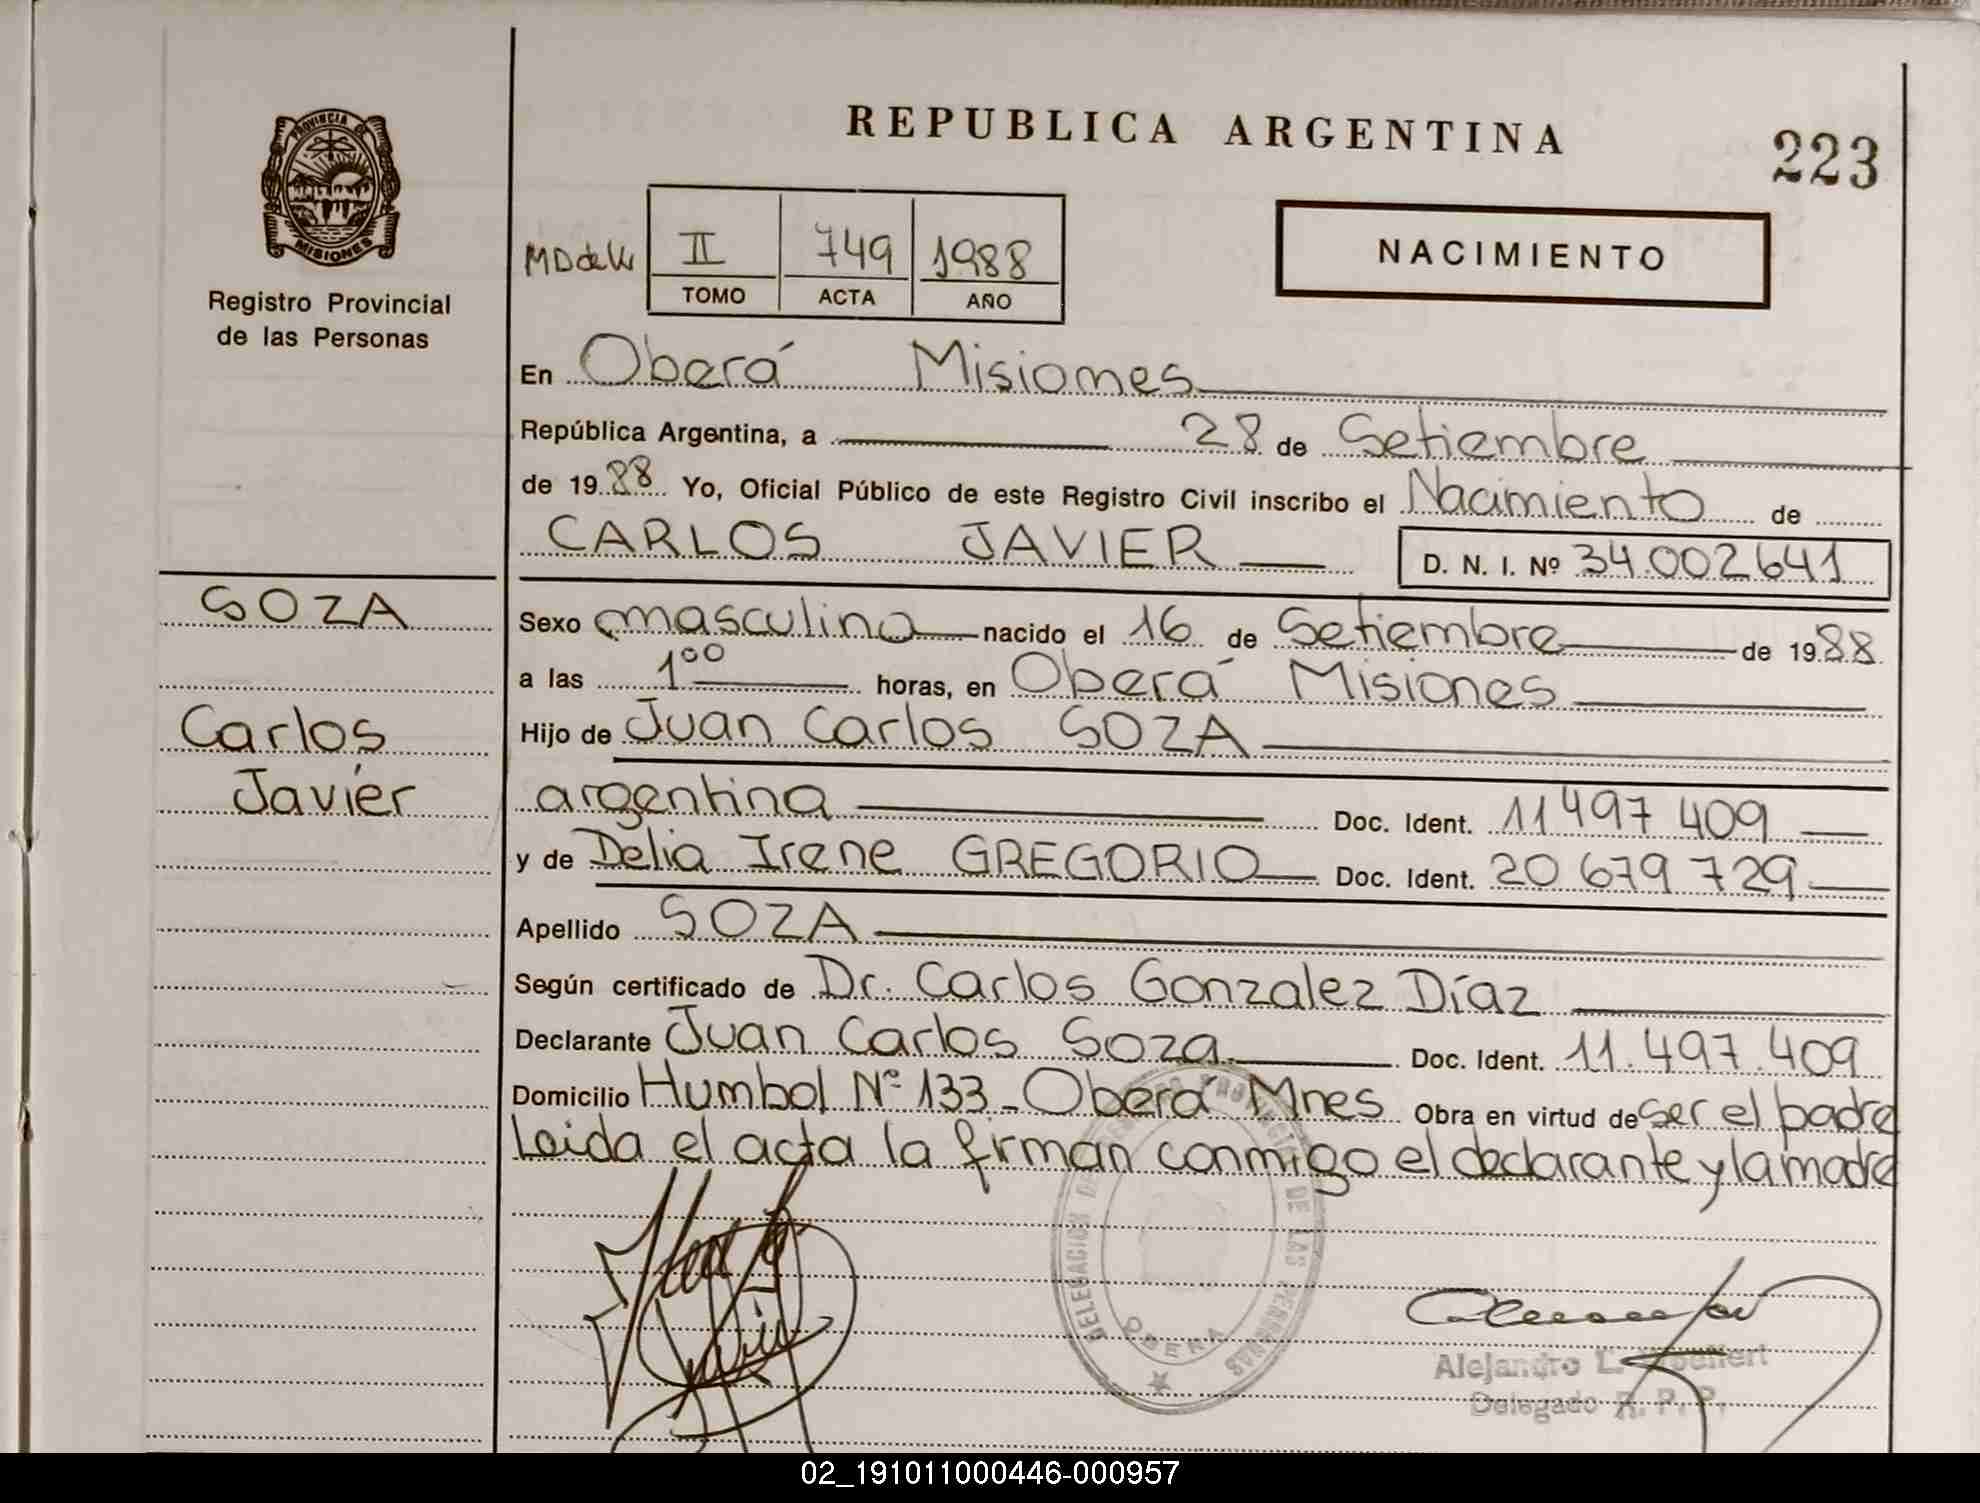 REPUBLICA ARGENTINA
223
PROVINCIA DE
MISIONES
Registro Provincial
de las Personas
II 749 1988
TOMO ACTA AÑO
NACIMIENTO
En Oberá Misiones
República Argentina, a 28 de Setiembre
de 1988 Yo, Oficial Público de este Registro Civil inscribo el Nacimiento de
CARLOS JAVIER D. N. I. Nº 34.002641
SOZA
Carlos
Javier
Sexo masculino nacido el 16 de Setiembre de 1988
a las 1⁰⁰ horas, en Oberá Misiones
Hijo de Juan Carlos SOZA
argentina Doc. Ident. 11497409
y de Delia Irene GREGORIO Doc. Ident. 20 679 729
Apellido SOZA
Según certificado de Dr. Carlos Gonzalez Díaz
Declarante Juan Carlos Soza Doc. Ident. 11.497.409
Domicilio Humbol Nº 133 - Oberá Mnes Obra en virtud de ser el padre
Leida el acta la firman conmigo el declarante y la madre
DELEGACION DE LAS PERSONAS
OBERA
Alejandro L.
Delegado R. P. P.
02_191011000446-000957